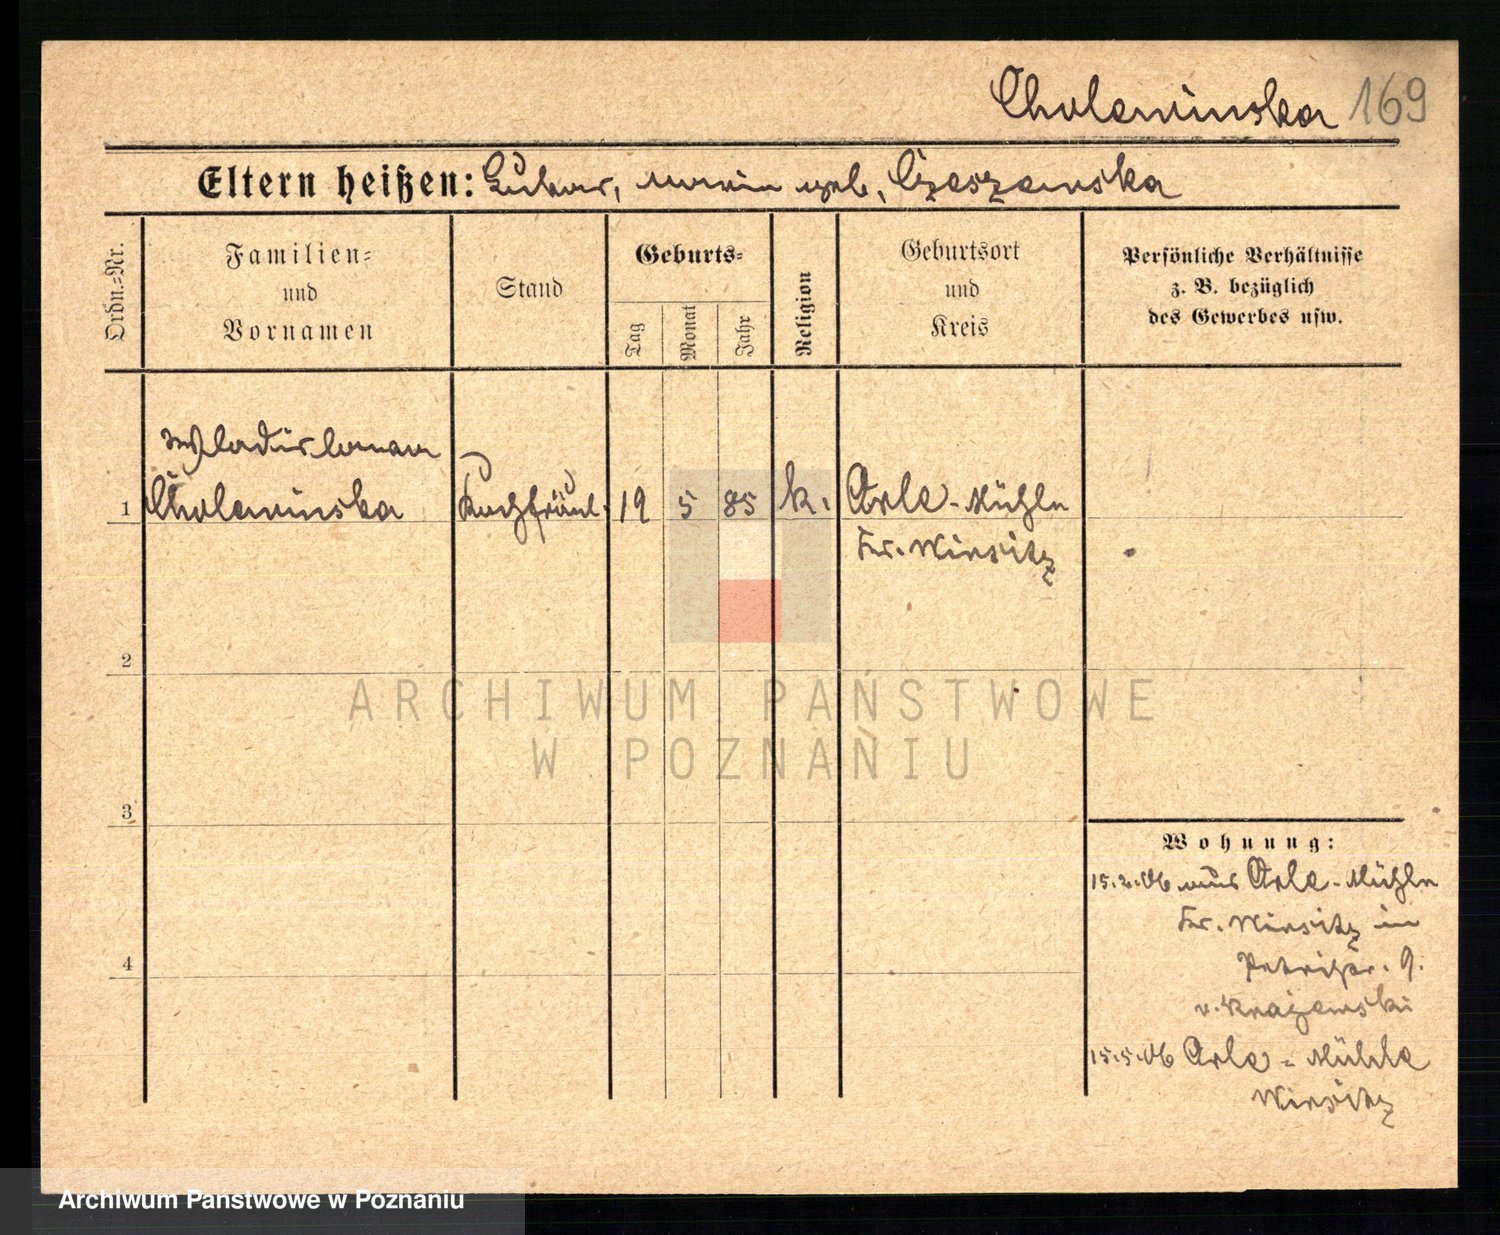 Cholewinska 169
Eltern heißen: Lukas, Maria geb. Czeszewska
Ordn.=Nr.
Familien=
und
Vornamen
Stand
Geburts=
Tag
Monat
Jahr
Religion
Geburtsort
und
Kreis
Persönliche Verhältnisse
z. B. bezüglich
des Gewerbes usw.
Wladislawa
1 Cholewinska Kochfräul. 19 5 85 k. Orle-Mühle
Kr. Wirsitz
2
ARCHIWUM PAŃSTWOWE
W POZNANIU
3
Wohnung:
15.2.06 aus Orle-Mühle
Kr. Wirsitz in
Petristr. 9.
4
v. Krajewski
15.5.06 Orle-Mühle
Wirsitz
Archiwum Państwowe w Poznaniu